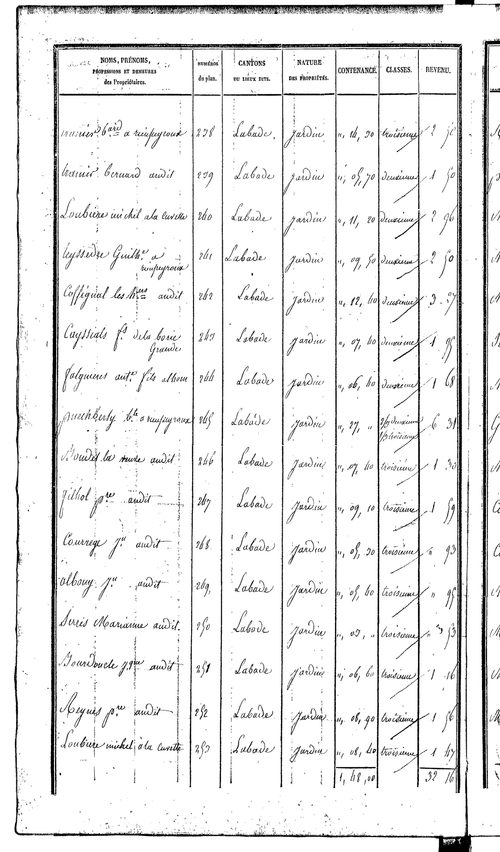 NOMS, PRÉNOMS, PROFESSIONS ET DEMEURES des Propriétaires. | NUMÉROS du plan. | CANTONS OU LIEUX DITS. | NATURE DES PROPRIÉTÉS. | CONTENANCE. | CLASSES. | REVENU.
a rieupeyroux 238 Labade. Jardin „ 16, 30 troisieme 2 50
bernard audit 239 Labade Jardin „ 05, 70 deuxieme 1 50
Loubiere michel a la cuvette 240 Labade Jardin „ 11, 20 deuxieme 2 96
teyssedre Guill.e a rieupeyroux 241 Labade Jardin „ 09, 50 deuxieme 2 50
Coffignal les h.ers audit 242 Labade Jardin „ 12, 40 deuxieme 3 27
Cayssials f.s de la borie Grande 243 Labade Jardin „ 07, 40 deuxieme 1 95
falguieres ant.e fils 244 Labade Jardin „ 06, 40 deuxieme 1 68
puechberty a rieupeyroux 245 Labade Jardin „ 27, „ deuxieme troisieme 6 31
la veuve audit 246 Labade Jardin „ 07, 40 troisieme 1 30
filhol p.re audit 247 Labade Jardin „ 09, 10 troisieme 1 59
Courrege j.n audit 248 Labade Jardin „ 05, 30 troisieme „ 93
albouy j.n audit 249 Labade Jardin „ 05, 40 troisieme „ 95
Seriès Marianne audit. 250 Labade Jardin „ 03, „ troisieme „ 53
Bourdoncle audit 251 Labade Jardin „ 06, 60 troisieme 1 16
Reynes p.re audit 252 Labade Jardin „ 08, 90 troisieme 1 56
Loubiere michel a la cuvette 253 Labade Jardin „ 08, 40 troisieme 1 47
32 16